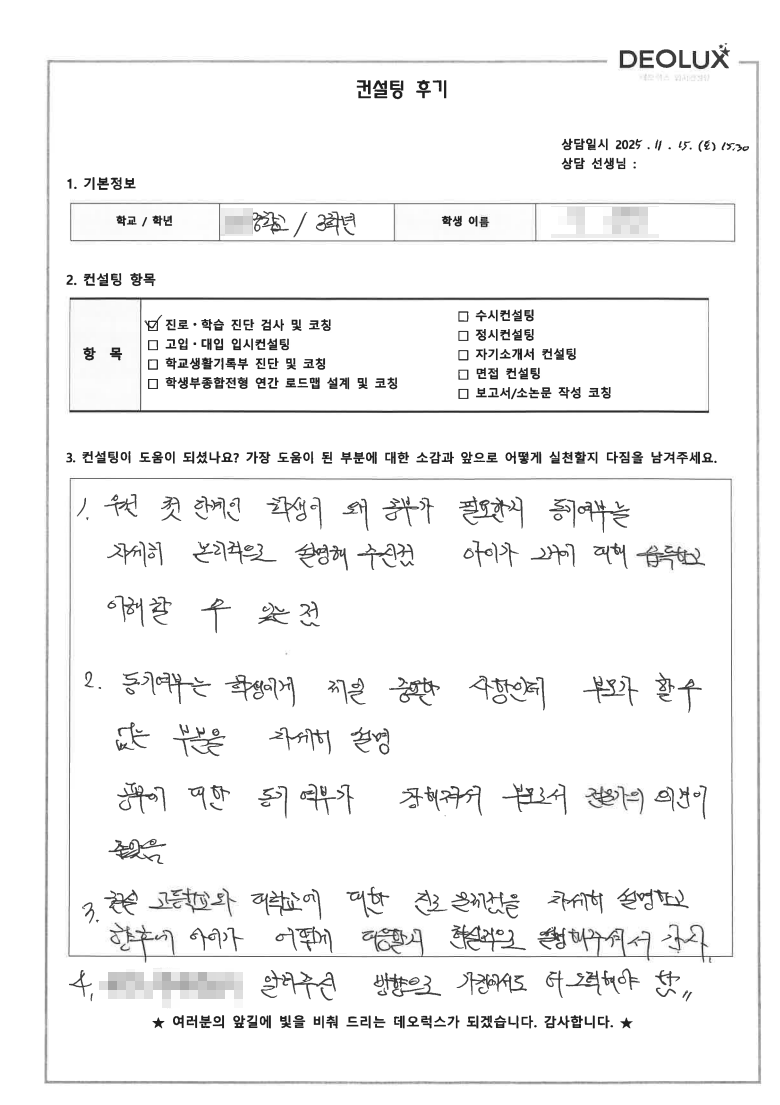 DEOLUX
컨설팅 후기
상담일시 2025. 11. 15. (토) 15:30
상담 선생님 :
1. 기본정보
학교 / 학년
중학교 / 3학년
학생 이름
2. 컨설팅 항목
항 목
☑ 진로·학습 진단 검사 및 코칭
□ 고입·대입 입시컨설팅
□ 학교생활기록부 진단 및 코칭
□ 학생부종합전형 연간 로드맵 설계 및 코칭
□ 수시컨설팅
□ 정시컨설팅
□ 자기소개서 컨설팅
□ 면접 컨설팅
□ 보고서/소논문 작성 코칭
3. 컨설팅이 도움이 되셨나요? 가장 도움이 된 부분에 대한 소감과 앞으로 어떻게 실천할지 다짐을 남겨주세요.
1. 우선 첫 단계인 학생이 왜 공부가 필요한지 동기여부를
자세히 논리적으로 설명해 주신점 아이가 그거에 대해 습득하고
이해할 수 있는 점
2. 동기여부는 학생에게 제일 중요한 사항인데 부모가 할 수
없는 부분을 자세히 설명
공부에 대한 동기 여부가 강해져서 부모로서 전문가의 의견이
좋았음
3. 고등학교와 대학교에 대한 진로 문제점을 자세히 설명하고
향후에 아이가 어떻게 대응할지 현실적으로 설명해주셔서 감사.
4. 알려주신 방향으로 가정에서도 더 노력해야 함"
★ 여러분의 앞길에 빛을 비춰 드리는 데오럭스가 되겠습니다. 감사합니다. ★